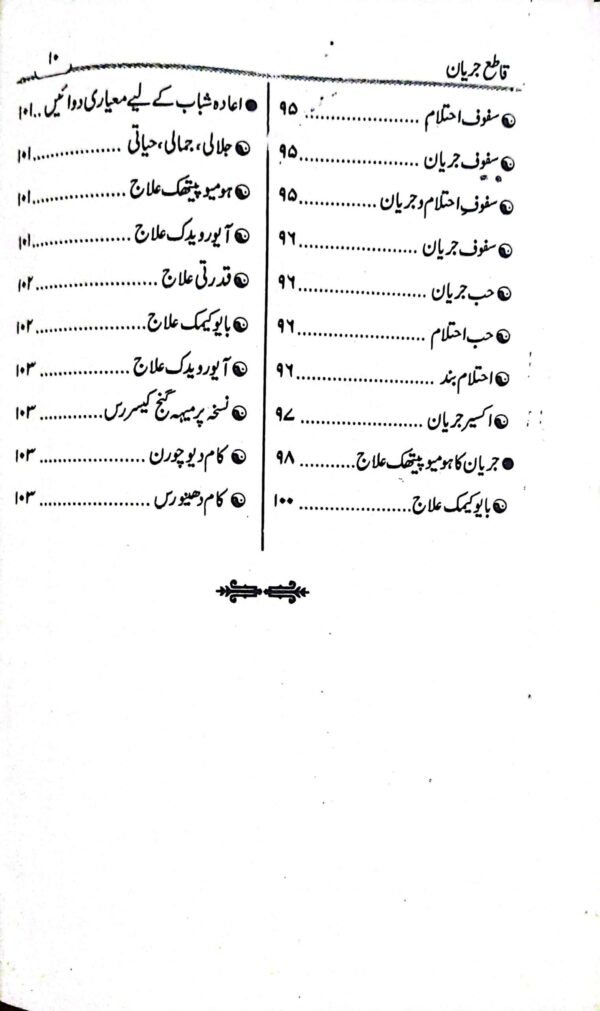 قاطع جریان
۱۰
سفوف احتلام .................. ۹۵
سفوف جریان .................. ۹۵
سفوف احتلام و جریان .................. ۹۵
سفوف جریان .................. ۹۶
حب جریان .................. ۹۶
حب احتلام .................. ۹۶
احتلام بند .................. ۹۶
اکسیر جریان .................. ۹۷
● جریان کا ہومیوپیتھک علاج .................. ۹۸
بایوکیمک علاج .................. ۱۰۰
● اعادہ شباب کے لیے معیاری دوائیں .. ۱۰۱
جلالی، جمالی، حیاتی .................. ۱۰۱
ہومیوپیتھک علاج .................. ۱۰۱
آیورویدک علاج .................. ۱۰۱
قدرتی علاج .................. ۱۰۲
بایوکیمک علاج .................. ۱۰۲
آیورویدک علاج .................. ۱۰۳
نسخہ پرمیہہ گنج کیسررس .................. ۱۰۳
کام دیو چورن .................. ۱۰۳
کام دھینورس .................. ۱۰۳